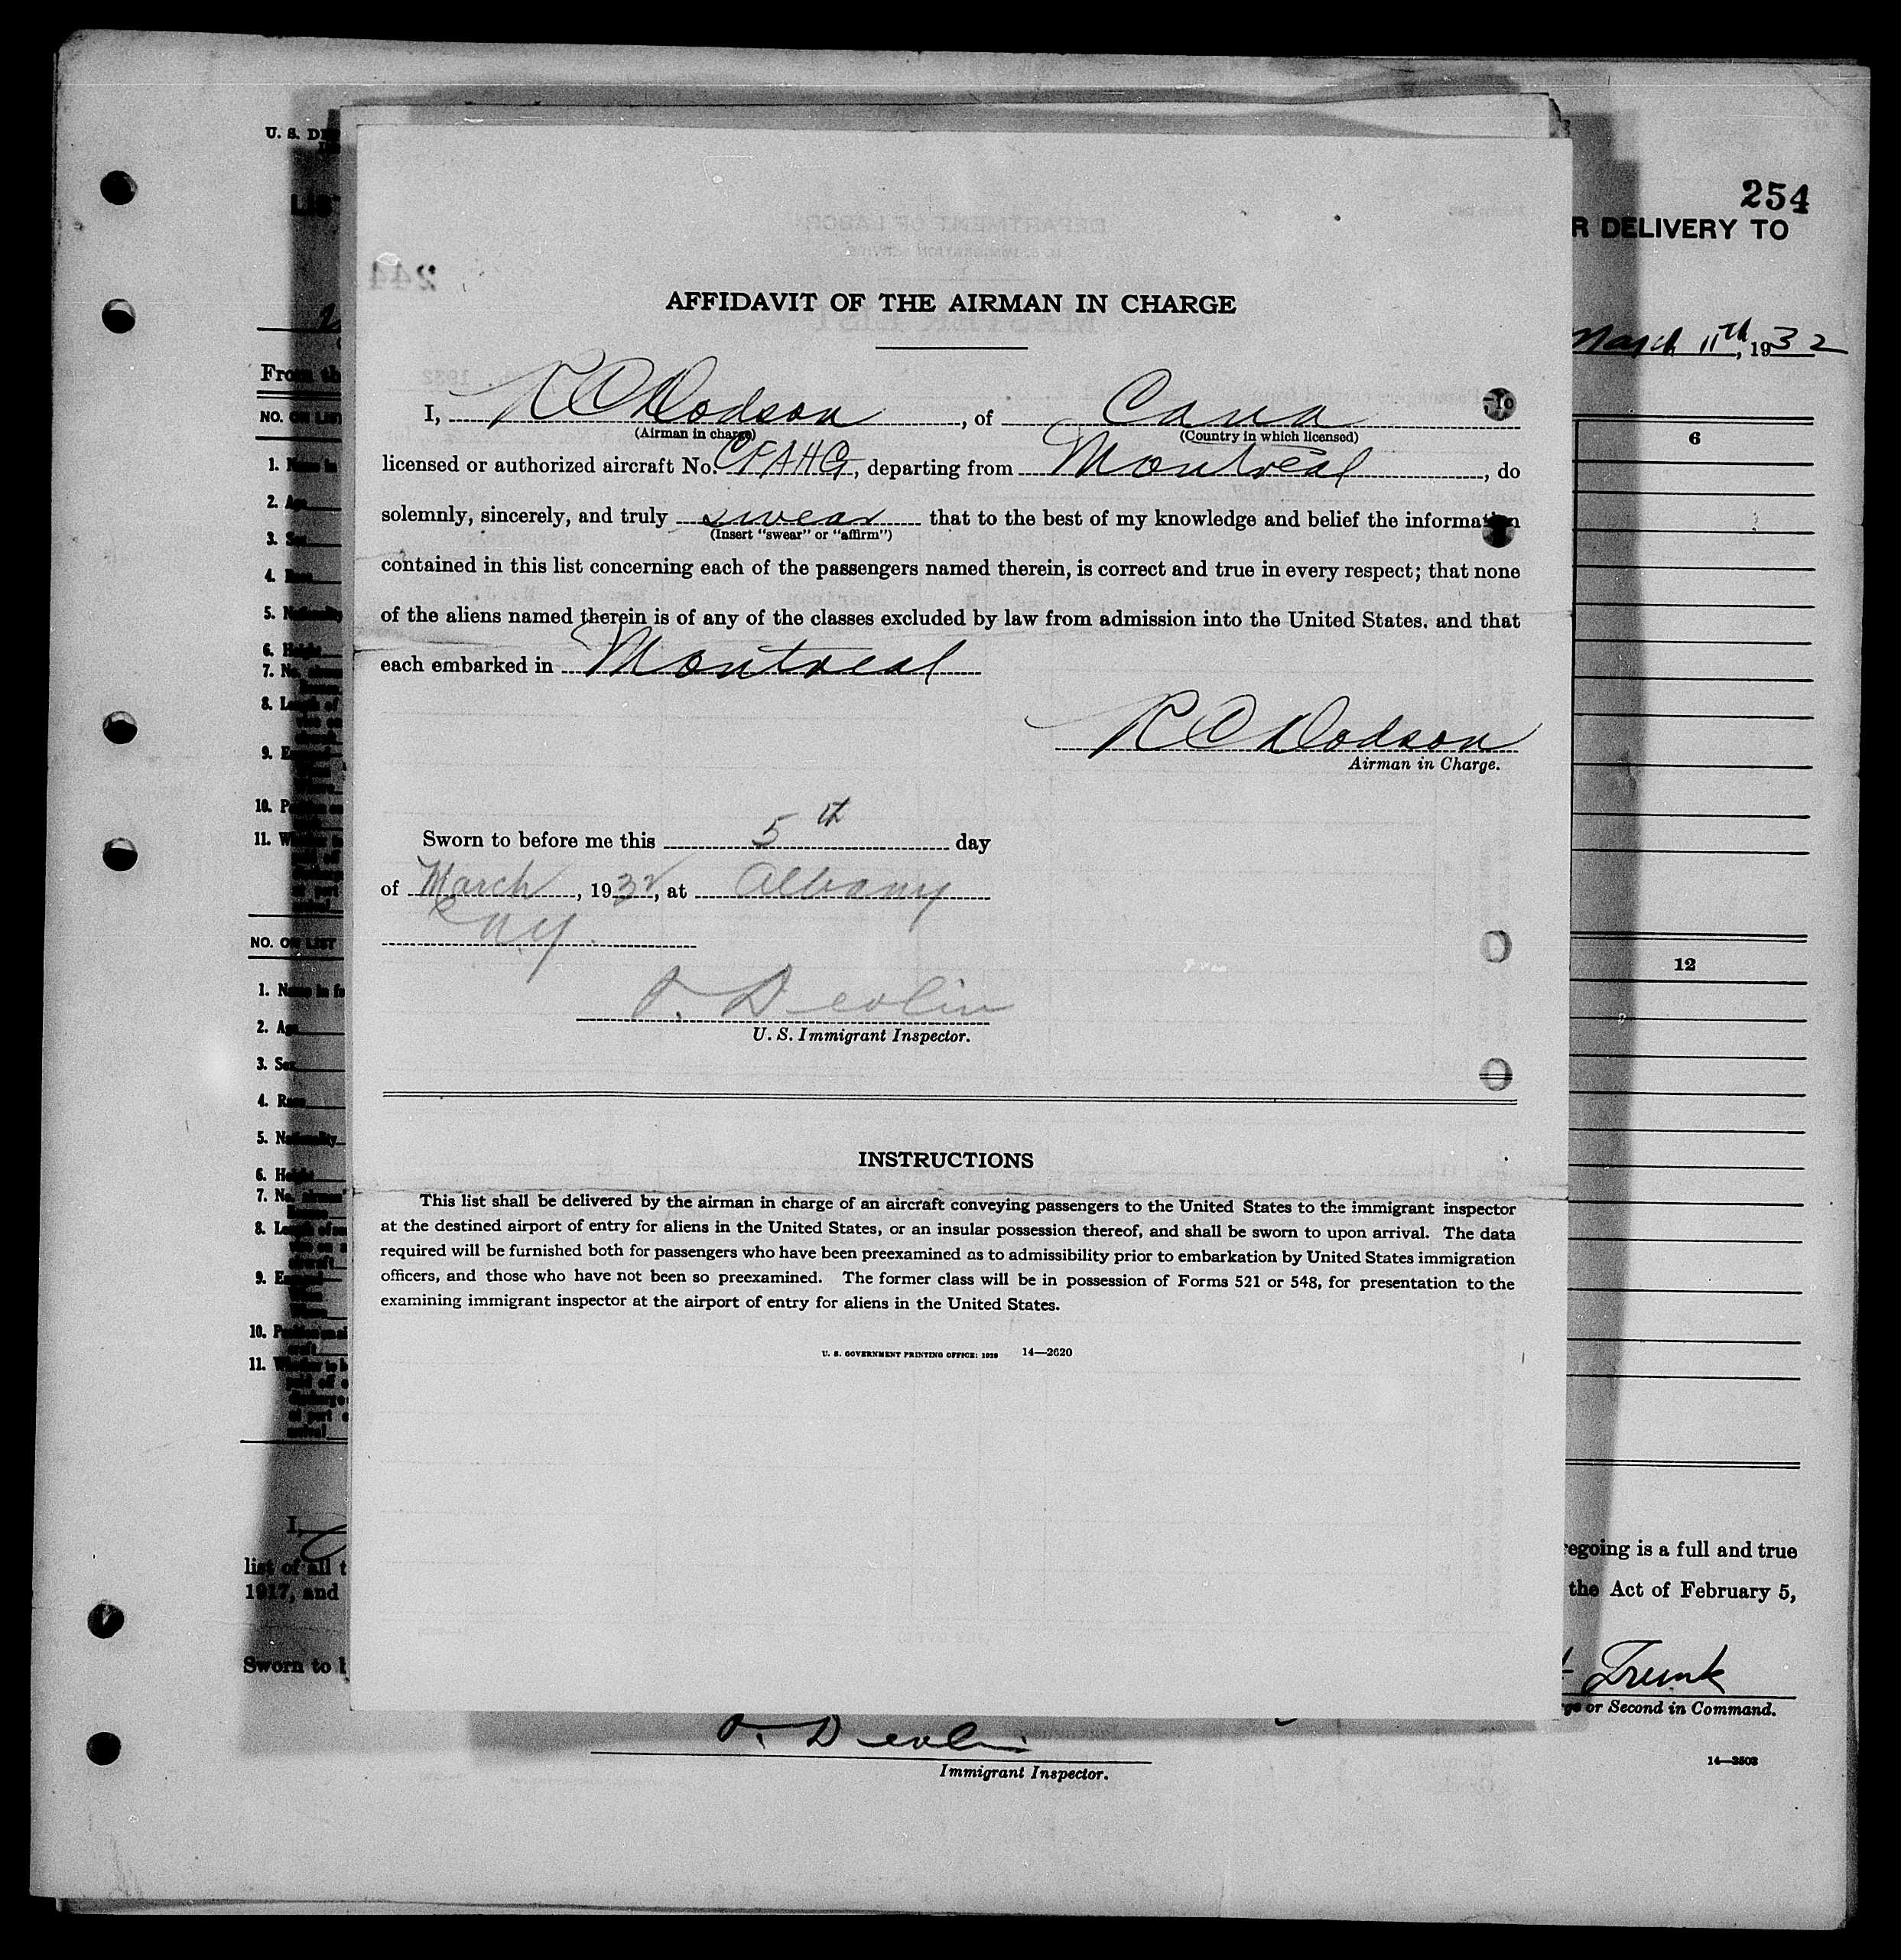 254
U. S. D
LIS
R DELIVERY TO
March 11th, 1932
From th
NO. ON LIST
6
AFFIDAVIT OF THE AIRMAN IN CHARGE
I, R C Dodson, of Cana
(Airman in charge) (Country in which licensed)
licensed or authorized aircraft No. CFAHG, departing from Montreal, do
solemnly, sincerely, and truly swear that to the best of my knowledge and belief the information
(Insert "swear" or "affirm")
contained in this list concerning each of the passengers named therein, is correct and true in every respect; that none
of the aliens named therein is of any of the classes excluded by law from admission into the United States, and that
each embarked in Montreal
R C Dodson
Airman in Charge.
Sworn to before me this 5th day
of March, 1932, at Albany
N.Y.
O. Devlin
U. S. Immigrant Inspector.
INSTRUCTIONS
This list shall be delivered by the airman in charge of an aircraft conveying passengers to the United States to the immigrant inspector
at the destined airport of entry for aliens in the United States, or an insular possession thereof, and shall be sworn to upon arrival. The data
required will be furnished both for passengers who have been preexamined as to admissibility prior to embarkation by United States immigration
officers, and those who have not been so preexamined. The former class will be in possession of Forms 521 or 548, for presentation to the
examining immigrant inspector at the airport of entry for aliens in the United States.
U. S. GOVERNMENT PRINTING OFFICE: 1929 14—2620
1. Name in
2. Age
3. Sex
4. Race
5. Nationality
6. Height
7. No.
8. Length of
9.
10.
11.
NO. ON LIST
12
1. Name in fu
2. Age
3. Sex
4. Race
5. Nationality
6. Height
7. No.
8. Length of
9.
10. Position on air
craft
11. Whether to b
arrival
I,
list of all t
regoing is a full and true
1917, and
the Act of February 5,
Sworn to b
Trunk
rge or Second in Command.
O. Devlin
Immigrant Inspector.
14—2503